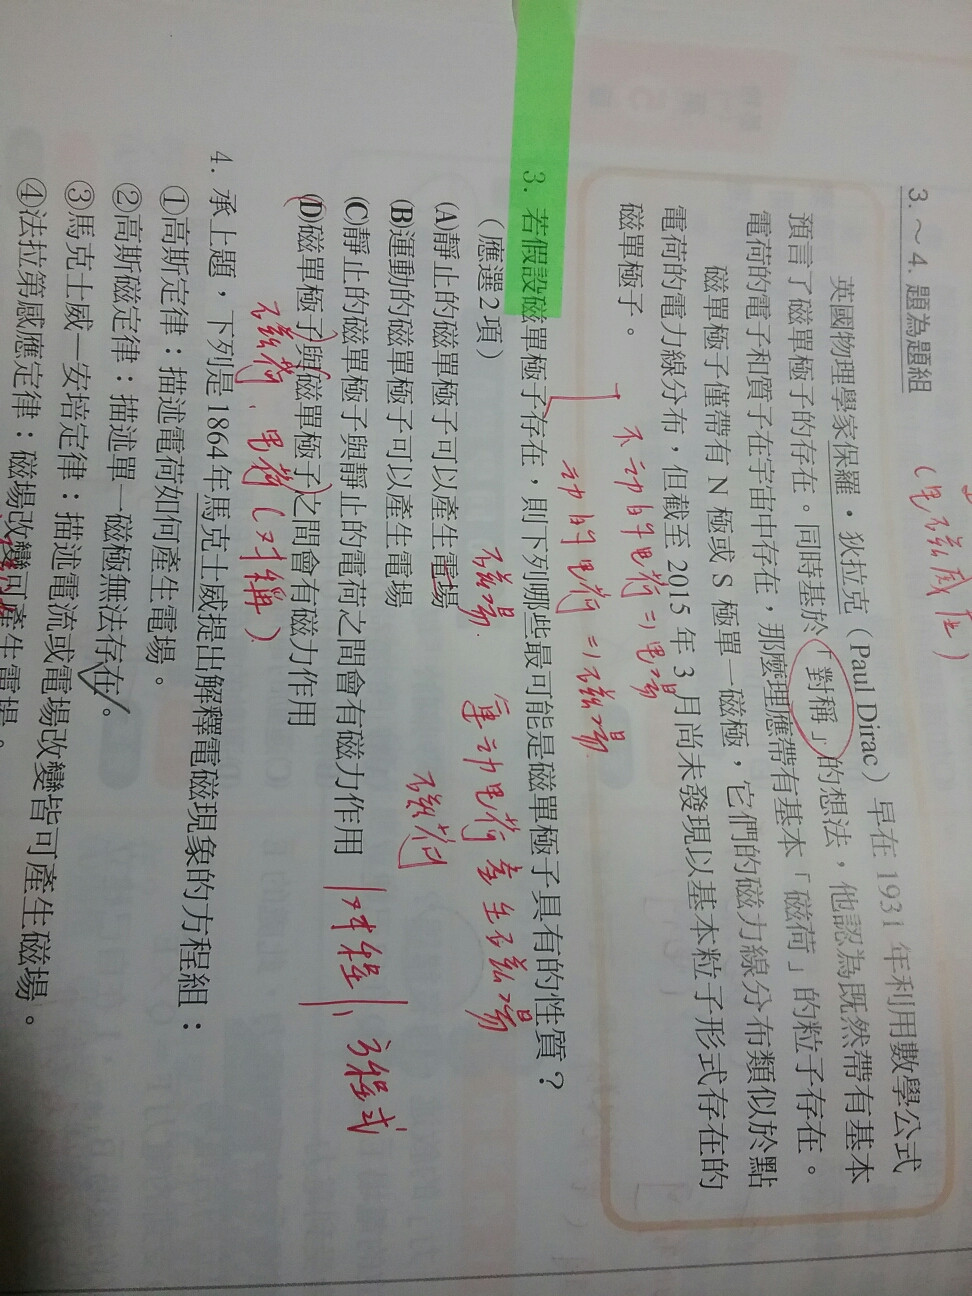 (電磁感應)
3.～4.題為題組
英國物理學家保羅·狄拉克（Paul Dirac）早在 1931 年利用數學公式
預言了磁單極子的存在。同時基於「對稱」的想法，他認為既然帶有基本
電荷的電子和質子在宇宙中存在，那麼理應帶有基本「磁荷」的粒子存在。
磁單極子僅帶有 N 極或 S 極單一磁極，它們的磁力線分布類似於點
電荷的電力線分布，但截至 2015 年 3 月尚未發現以基本粒子形式存在的
磁單極子。
不动的电荷⇒电場
动的电荷⇒磁場
3. 若假設磁單極子存在，則下列哪些最可能是磁單極子具有的性質？
（應選 2 項）
运动电荷產生磁場
磁場
(A)靜止的磁單極子可以產生電場
磁荷
(B)運動的磁單極子可以產生電場
(C)靜止的磁單極子與靜止的電荷之間會有磁力作用
方程式
(D)磁單極子與磁單極子之間會有磁力作用
磁荷、电荷(对稱)
4. 承上題，下列是 1864 年馬克士威提出解釋電磁現象的方程組：
①高斯定律：描述電荷如何產生電場。
②高斯磁定律：描述單一磁極無法存在。
③馬克士威—安培定律：描述電流或電場改變皆可產生磁場。
④法拉第感應定律：磁場改變可產生電場。